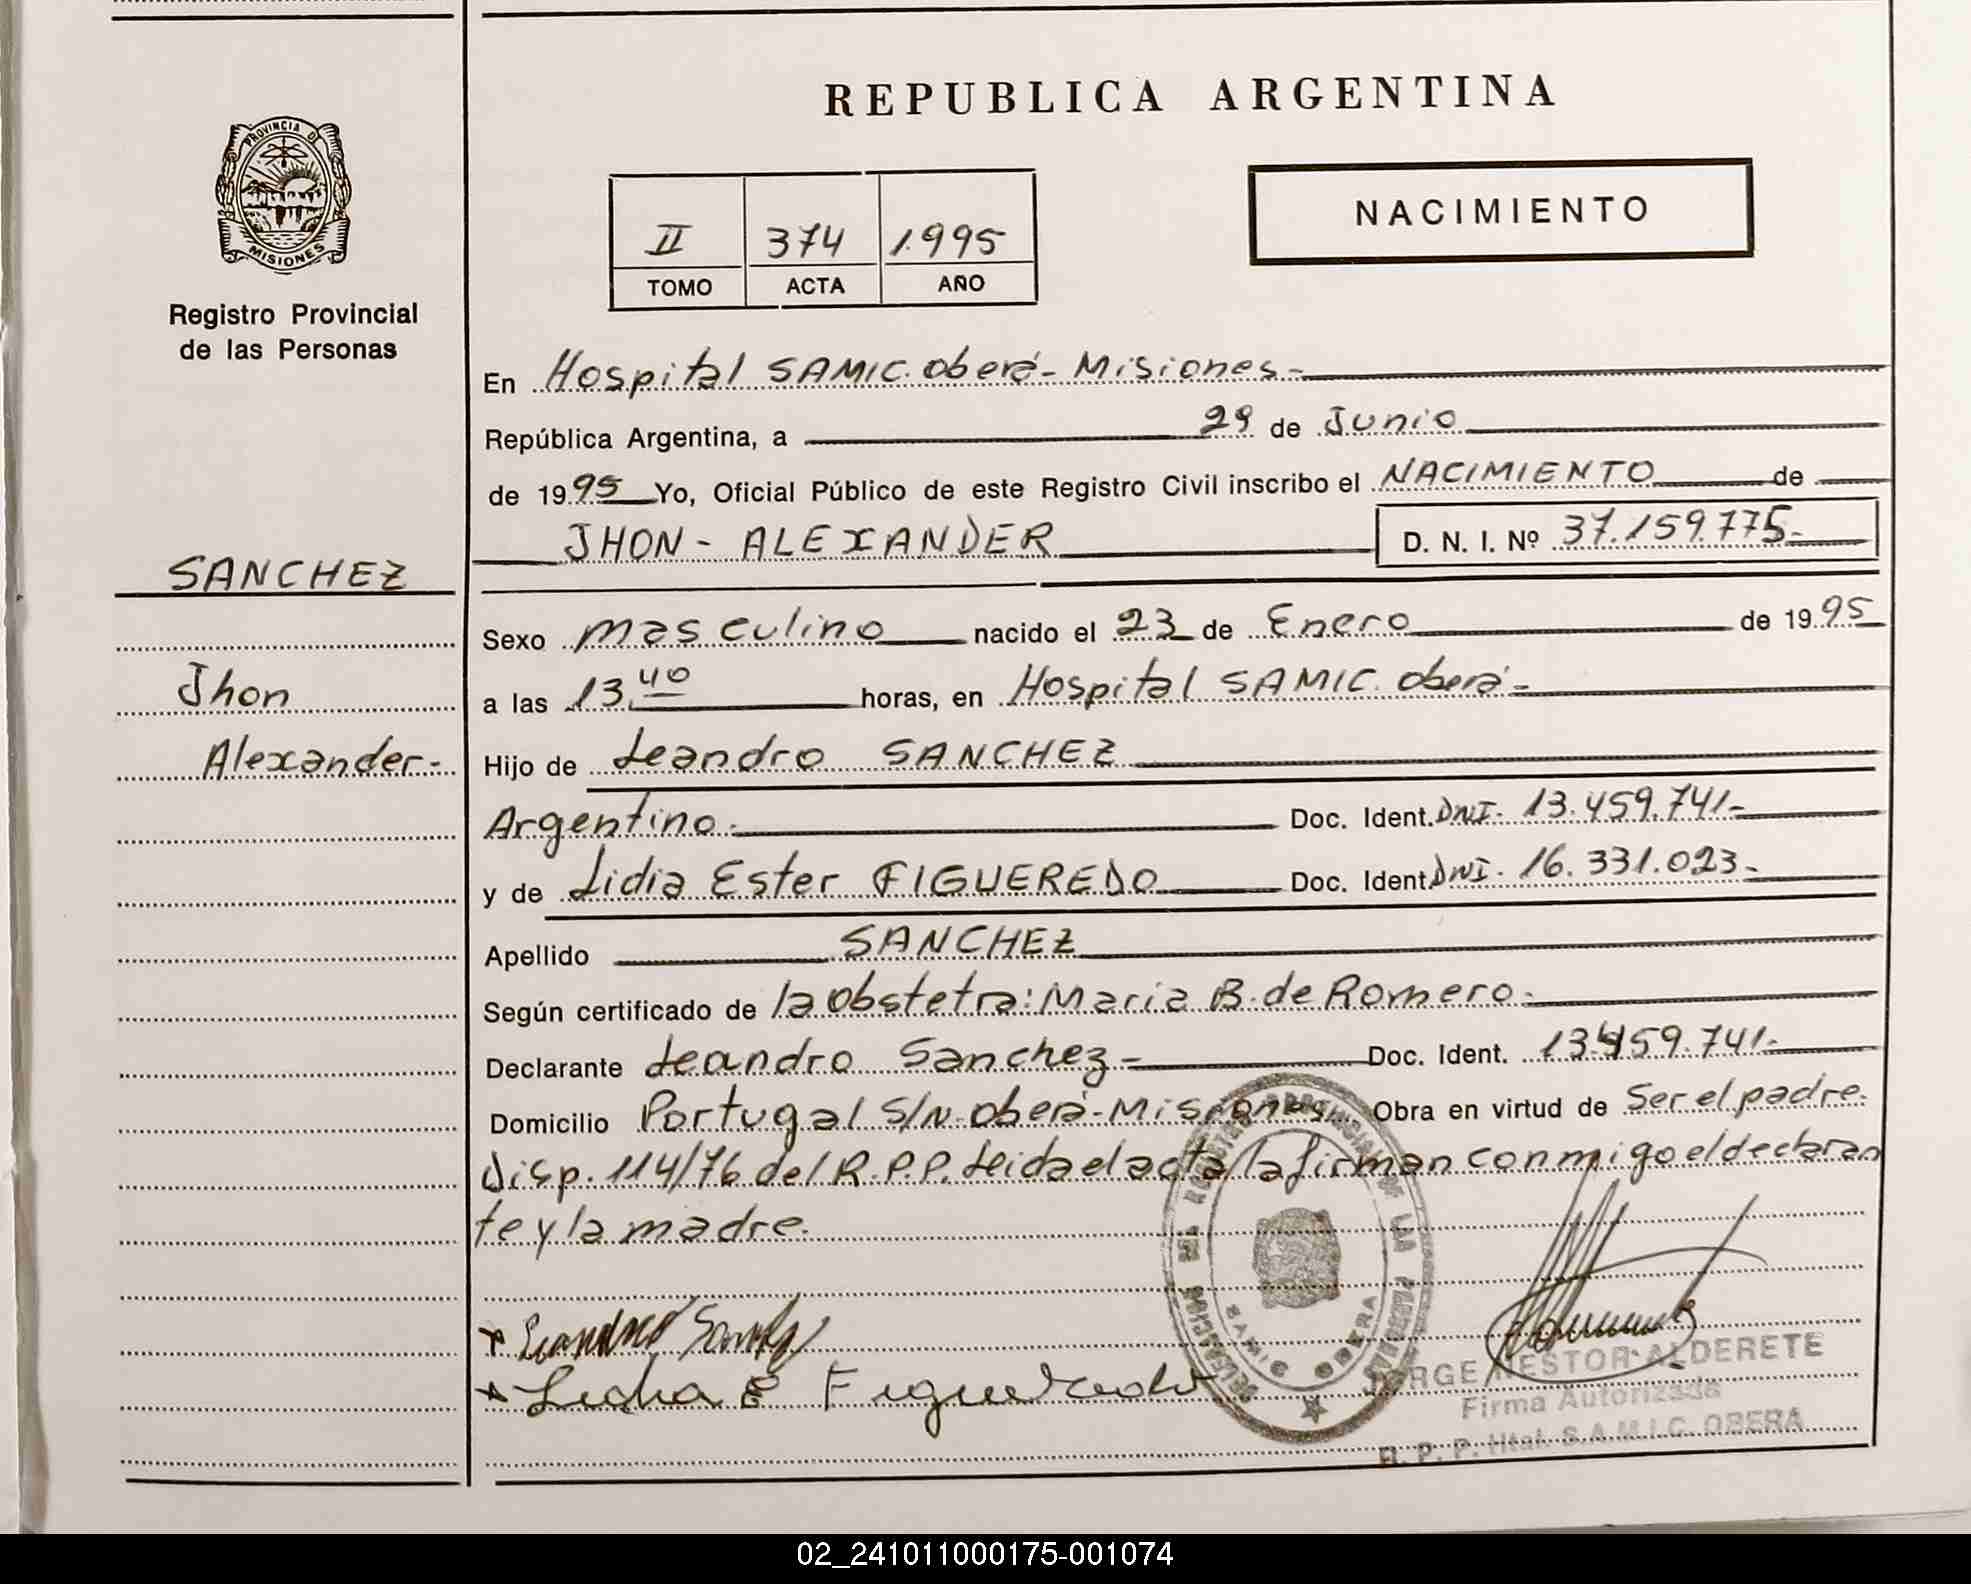 REPUBLICA ARGENTINA
PROVINCIA DE
MISIONES
Registro Provincial
de las Personas
NACIMIENTO
II 374 1.995
TOMO ACTA AÑO
En Hospital SAMIC. oberá- Misiones-
República Argentina, a 29 de Junio
de 1995 Yo, Oficial Público de este Registro Civil inscribo el NACIMIENTO de
JHON- ALEXANDER D. N. I. Nº 37.159.775-
SANCHEZ
Jhon
Alexander-
Sexo masculino nacido el 23 de Enero de 1995
a las 13,40 horas, en Hospital SAMIC. oberá-
Hijo de Leandro SANCHEZ
Argentino- Doc. Ident. DNI- 13.459.741-
y de Lidia Ester FIGUEREDO Doc. Ident DNI- 16.331.023-
Apellido SANCHEZ
Según certificado de la obstetra: Maria B. de Romero-
Declarante Leandro Sanchez- Doc. Ident. 13.459.741-
Domicilio Portugal S/N- oberá- Misiones- Obra en virtud de Ser el padre.
Disp. 114/76 del R.P.P. Leida el acta la firman conmigo el declaran
te y la madre.
Leandro Sanchez
Lidia E Figueredo
SAMIC OBERA
JORGE NESTOR ALDERETE
Firma Autorizada
R. P. P. Htal. S.A.M.I.C. OBERA
02_241011000175-001074